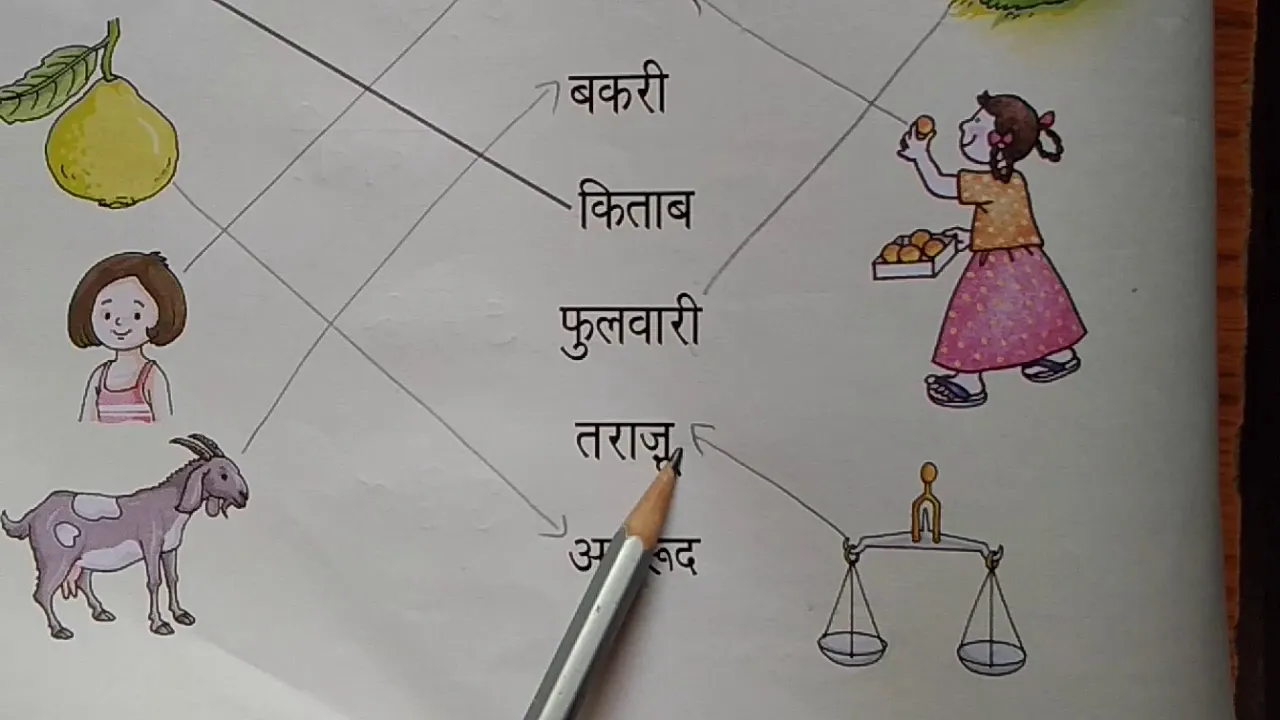 बकरी
किताब
फुलवारी
तराजू